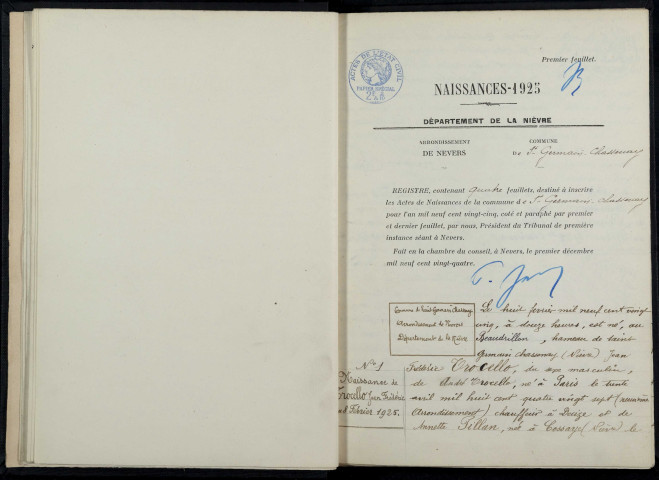 Premier feuillet.
ACTES DE L'ETAT CIVIL
PAPIER SPÉCIAL
NAISSANCES-1925
DÉPARTEMENT DE LA NIÈVRE
ARRONDISSEMENT
DE NEVERS
COMMUNE
DE St Germain Chassenay
REGISTRE, contenant quatre feuillets, destiné à inscrire
les Actes de Naissances de la commune de St Germain Chassenay
pour l'an mil neuf cent vingt-cinq, coté et paraphé par premier
et dernier feuillet, par nous, Président du Tribunal de première
instance séant à Nevers.
Fait en la chambre du conseil, à Nevers, le premier décembre
mil neuf cent vingt-quatre.
Commune de Saint Germain Chassenay
Arrondissement de Nevers
Département de la Nièvre
No 1
Naissance de
Trocello Jean Frédéric
8 Février 1925.
Le huit février mil neuf cent vingt
cinq, à douze heures, est né, au
Beaudrillon, hameau de Saint
Germain Chassenay (Nièvre) Jean
Frédéric Trocello, du sexe masculin,
de André Trocello, né à Paris le trente
avril mil huit cent quatre vingt sept
arrondissement) chauffeur à Decize et de
Annette Tillan, née à Cossaye (Nièvre) le